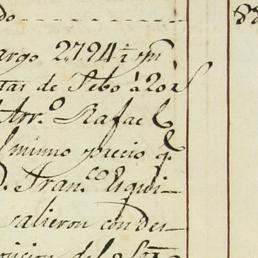 do
argo 2794½ pp
tas de Sebo à 20 r
Arr.º Rafael
mismo precio q.
D. Fran.co Esqui-
salieron con des-
del